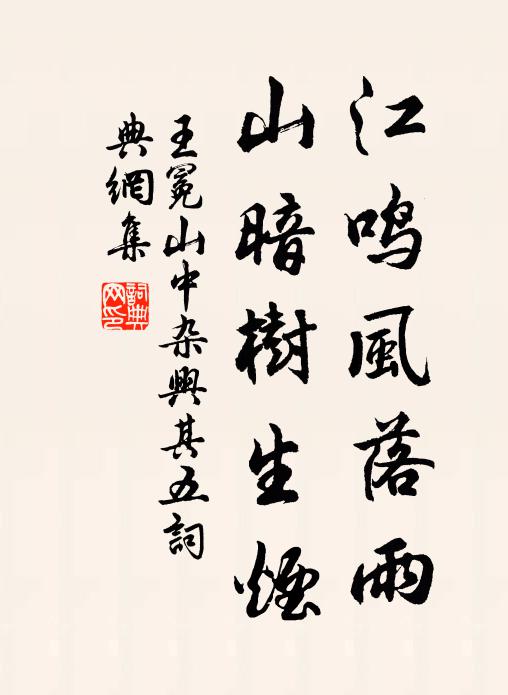 江鸣風落雨
山暗樹生煙
王冕山中杂興其五詞
典網集
詞典网印